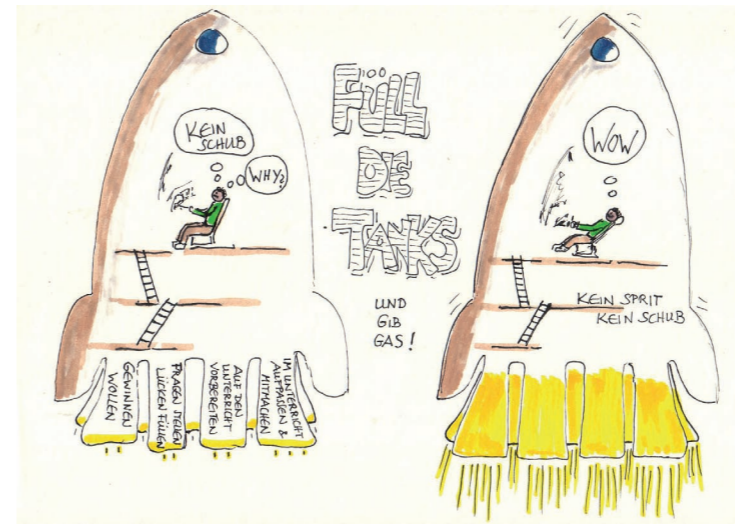 KEIN
SCHUB
WHY?
FÜLL
DE
TANKS
UND
GIB
GAS!
WOW
KEIN SPRIT
KEIN SCHUB
GEWINNEN
WOLLEN
FRAGEN STELLEN
LÜCKEN FÜLLEN
AUF DEN
UNTERRICHT
VORBEREITEN
IM UNTERRICHT
AUFPASSEN &
MITMACHEN